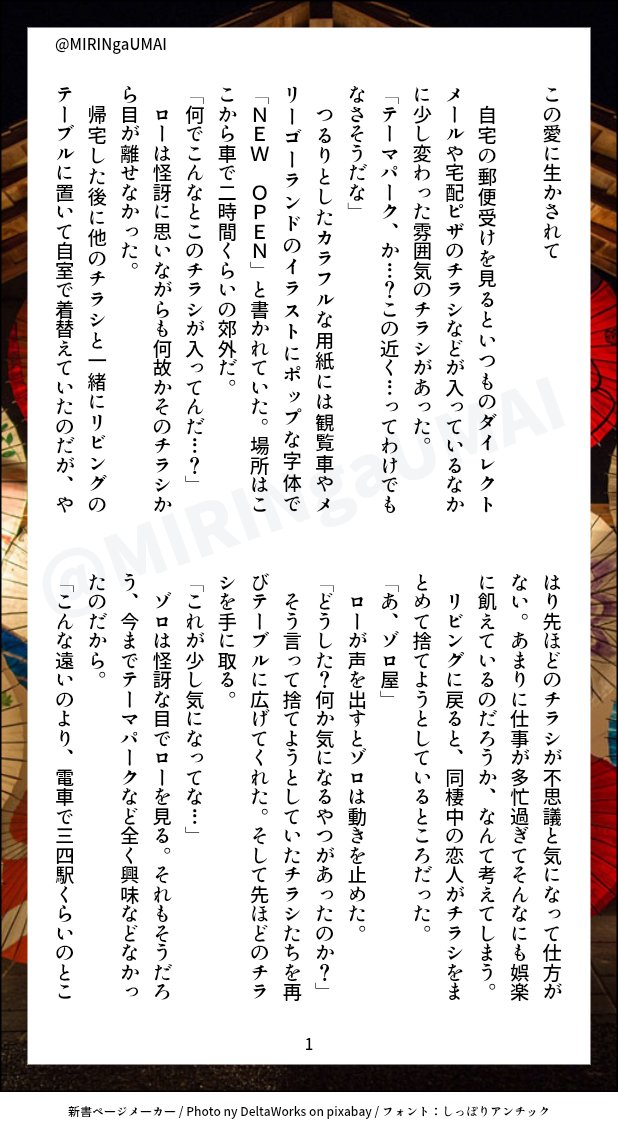 @MIRINgaUMAI
この愛に生かされて
　自宅の郵便受けを見るといつものダイレクト
メールや宅配ピザのチラシなどが入っているなか
に少し変わった雰囲気のチラシがあった。
「テーマパーク、か…？この近く…ってわけでも
なさそうだな」
　つるりとしたカラフルな用紙には観覧車やメ
リーゴーランドのイラストにポップな字体で
「ＮＥＷ　ＯＰＥＮ」と書かれていた。場所はこ
こから車で二時間くらいの郊外だ。
「何でこんなとこのチラシが入ってんだ…？」
　ローは怪訝に思いながらも何故かそのチラシか
ら目が離せなかった。
　帰宅した後に他のチラシと一緒にリビングの
テーブルに置いて自室で着替えていたのだが、や
はり先ほどのチラシが不思議と気になって仕方が
ない。あまりに仕事が多忙過ぎてそんなにも娯楽
に飢えているのだろうか、なんて考えてしまう。
　リビングに戻ると、同棲中の恋人がチラシをま
とめて捨てようとしているところだった。
「あ、ゾロ屋」
　ローが声を出すとゾロは動きを止めた。
「どうした？何か気になるやつがあったのか？」
　そう言って捨てようとしていたチラシたちを再
びテーブルに広げてくれた。そして先ほどのチラ
シを手に取る。
「これが少し気になってな…」
　ゾロは怪訝な目でローを見る。それもそうだろ
う、今までテーマパークなど全く興味などなかっ
たのだから。
「こんな遠いのより、電車で三四駅くらいのとこ
@MIRINgaUMAI
1
新書ページメーカー / Photo ny DeltaWorks on pixabay / フォント：しっぽりアンチック